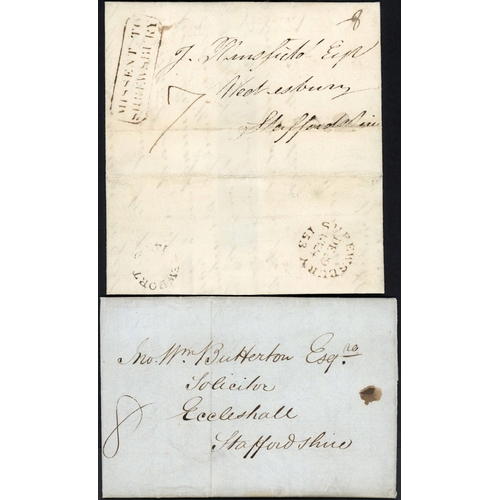 8
MISSENT TO
SHREWSBURY
J. Wansfield Esqr
7
Wednesbury
Staffordshire
SHREWSBURY
153
NEWPORT
Jno. Wm. Butterton Esq.re
Solicitor
8
Eccleshall
Staffordshire